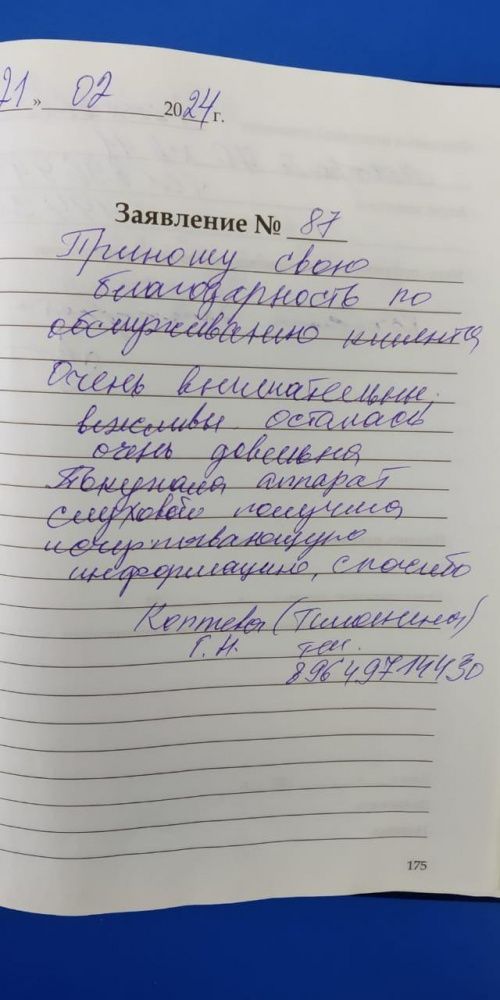 21 » 02 2024 г.
Заявление № 87
Приношу свою
благодарность по
обслуживанию клиента
Очень внимательны,
вежливы осталась
очень довольна
Покупала аппарат
слуховой получила
исчерпывающую
информацию, спасибо
Коптева (Тимонина)
Г.Н. тел.
89649714430
175